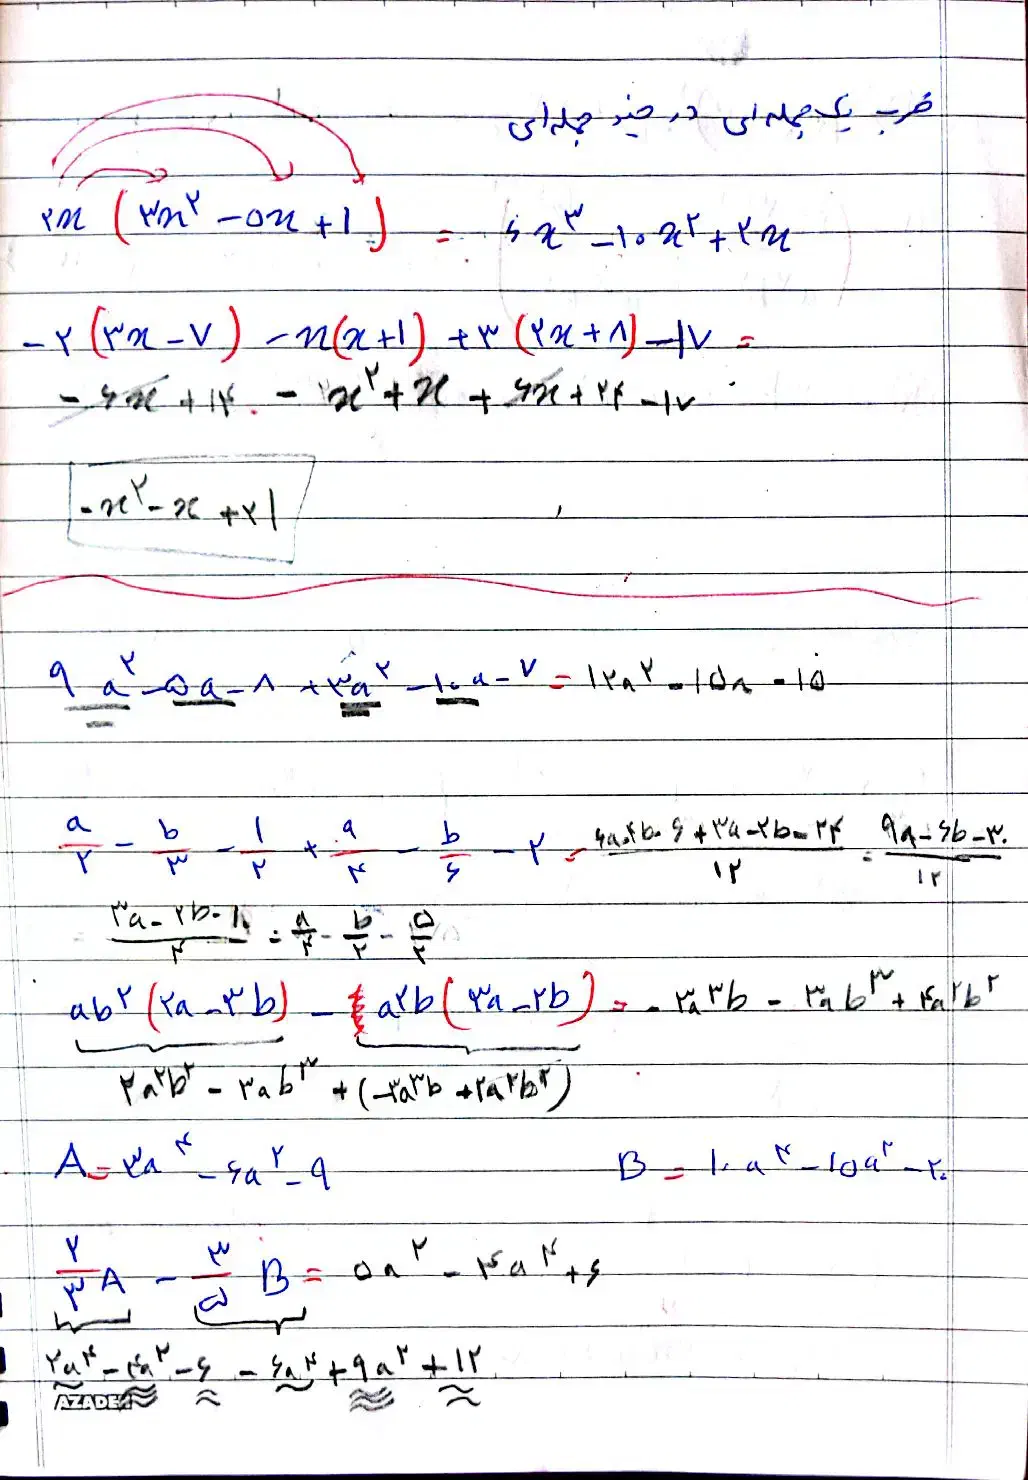 ضرب یک جمله‌ای در چند جمله‌ای
۲x (۳x^۲ - ۵x + ۱) = ۶x^۳ - ۱۰x^۲ + ۲x
- ۲ (۳x - ۷) - x(x+۱) + ۳ (۲x + ۸) - ۱۷ =
- ۶x + ۱۴ - x^۲ + x + ۶x + ۲۴ - ۱۷
- x^۲ - x + ۲۱
۹a^۲ - ۵a - ۸ + ۳a^۲ - ۱۰a - ۷ = ۱۲a^۲ - ۱۵a - ۱۵
a/۲ - b/۳ - ۱/۲ + a/۴ - b/۶ - ۲ = (۶a - ۴b - ۶ + ۳a - ۲b - ۲۴)/۱۲ = (۹a - ۶b - ۳۰)/۱۲
= (۳a - ۲b - ۱۰)/۴ = a/۴ - b/۲ - ۵/۲
ab^۲ (۲a - ۳b) - a^۲b (۳a - ۲b) = - ۳a^۳b - ۳ab^۳ + ۴a^۲b^۲
۲a^۲b^۲ - ۳ab^۳ + (-۳a^۳b + ۲a^۲b^۲)
A = ۳a^۴ - ۶a^۲ - ۹ B = ۱۰a^۴ - ۱۵a^۲ - ۲۰
۲/۳ A - ۳/۵ B = ۵a^۲ - ۴a^۴ + ۶
۲a^۴ - ۴a^۲ - ۶ - ۶a^۴ + ۹a^۲ + ۱۲
AZADEH